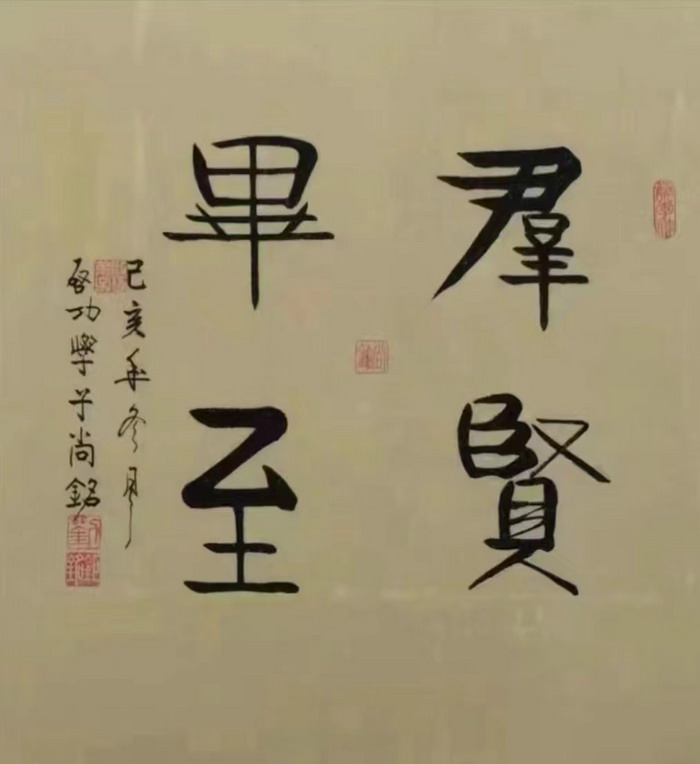 羣賢
畢至
己亥年冬月
启功學子尚銘